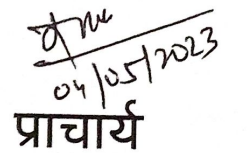 04/05/2023
प्राचार्य